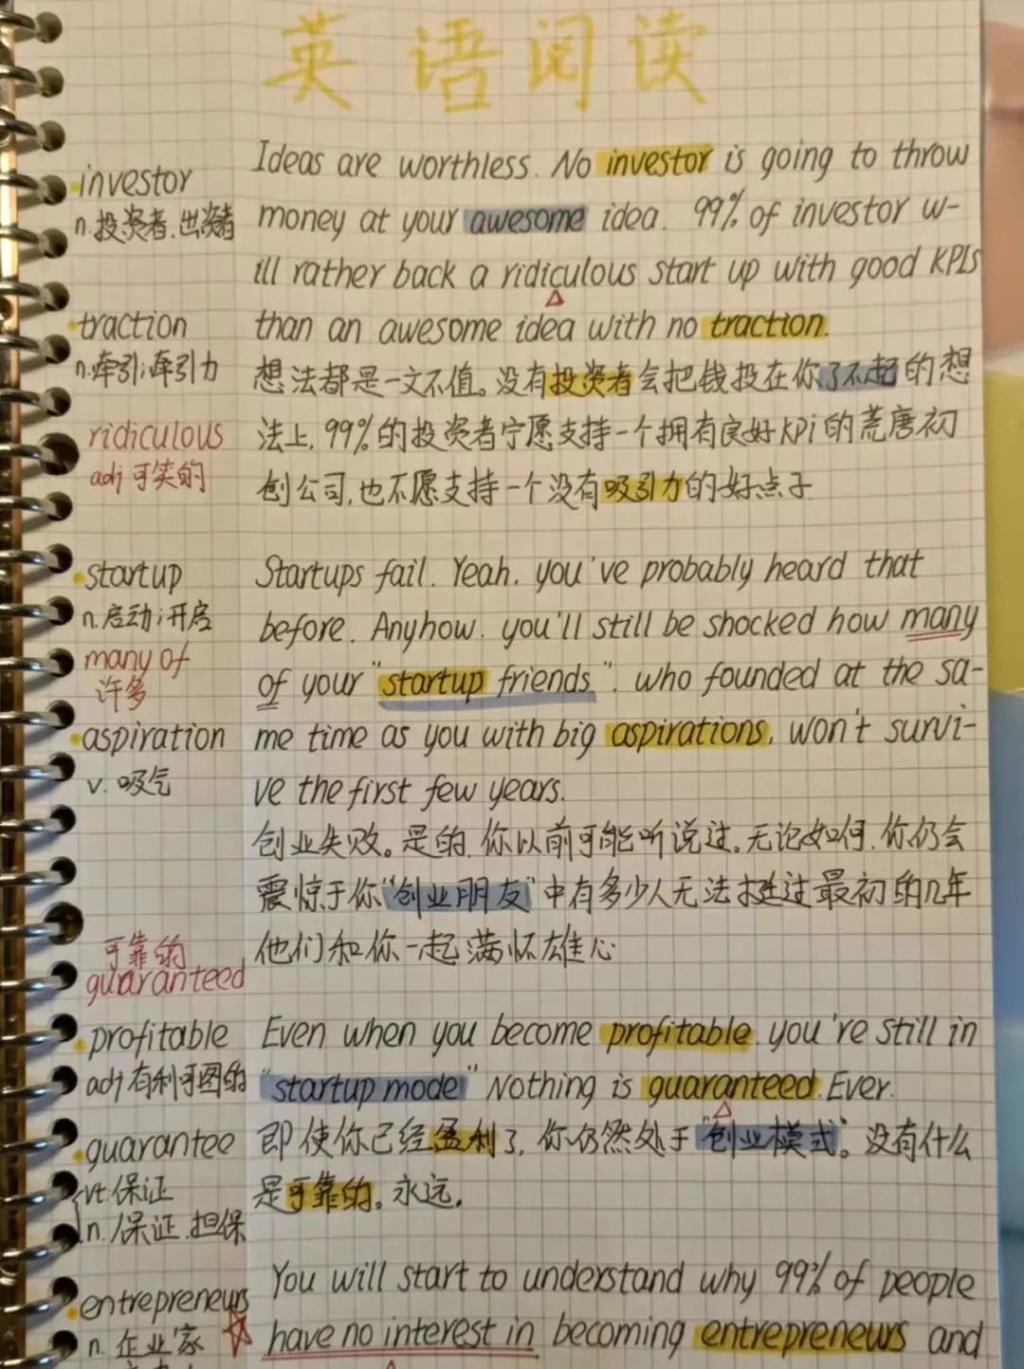 英语阅读
investor
n.投资者.出资者
traction
n.牵引;牵引力
ridiculous
adj 可笑的
startup
n.启动;开启
many of
许多
aspiration
v. 吸气
可靠的
guaranteed
profitable
adj 有利可图的
guarantee
vt.保证
n./保证.担保
entrepreneurs
n. 企业家
Ideas are worthless. No investor is going to throw
money at your awesome idea. 99% of investor w-
ill rather back a ridiculous start up with good KPIs
than an awesome idea with no traction.
想法都是一文不值。没有投资者会把钱投在你了不起的想
法上, 99%的投资者宁愿支持一个拥有良好KPi的荒唐初
创公司,也不愿支持一个没有吸引力的好点子
Startups fail. Yeah. you've probably heard that
before. Anyhow. you'll still be shocked how many
of your "startup friends". who founded at the sa-
me time as you with big aspirations, won't survi-
ve the first few years.
创业失败。是的.你以前可能听说过.无论如何.你仍会
震惊于你"创业朋友"中有多少人无法挺过最初的几年
他们和你一起满怀雄心
Even when you become profitable. you're still in
"startup mode" Nothing is guaranteed. Ever.
即使你已经盈利了, 你仍然处于"创业模式"。没有什么
是可靠的。永远。
You will start to understand why 99% of people
have no interest in becoming entrepreneurs and